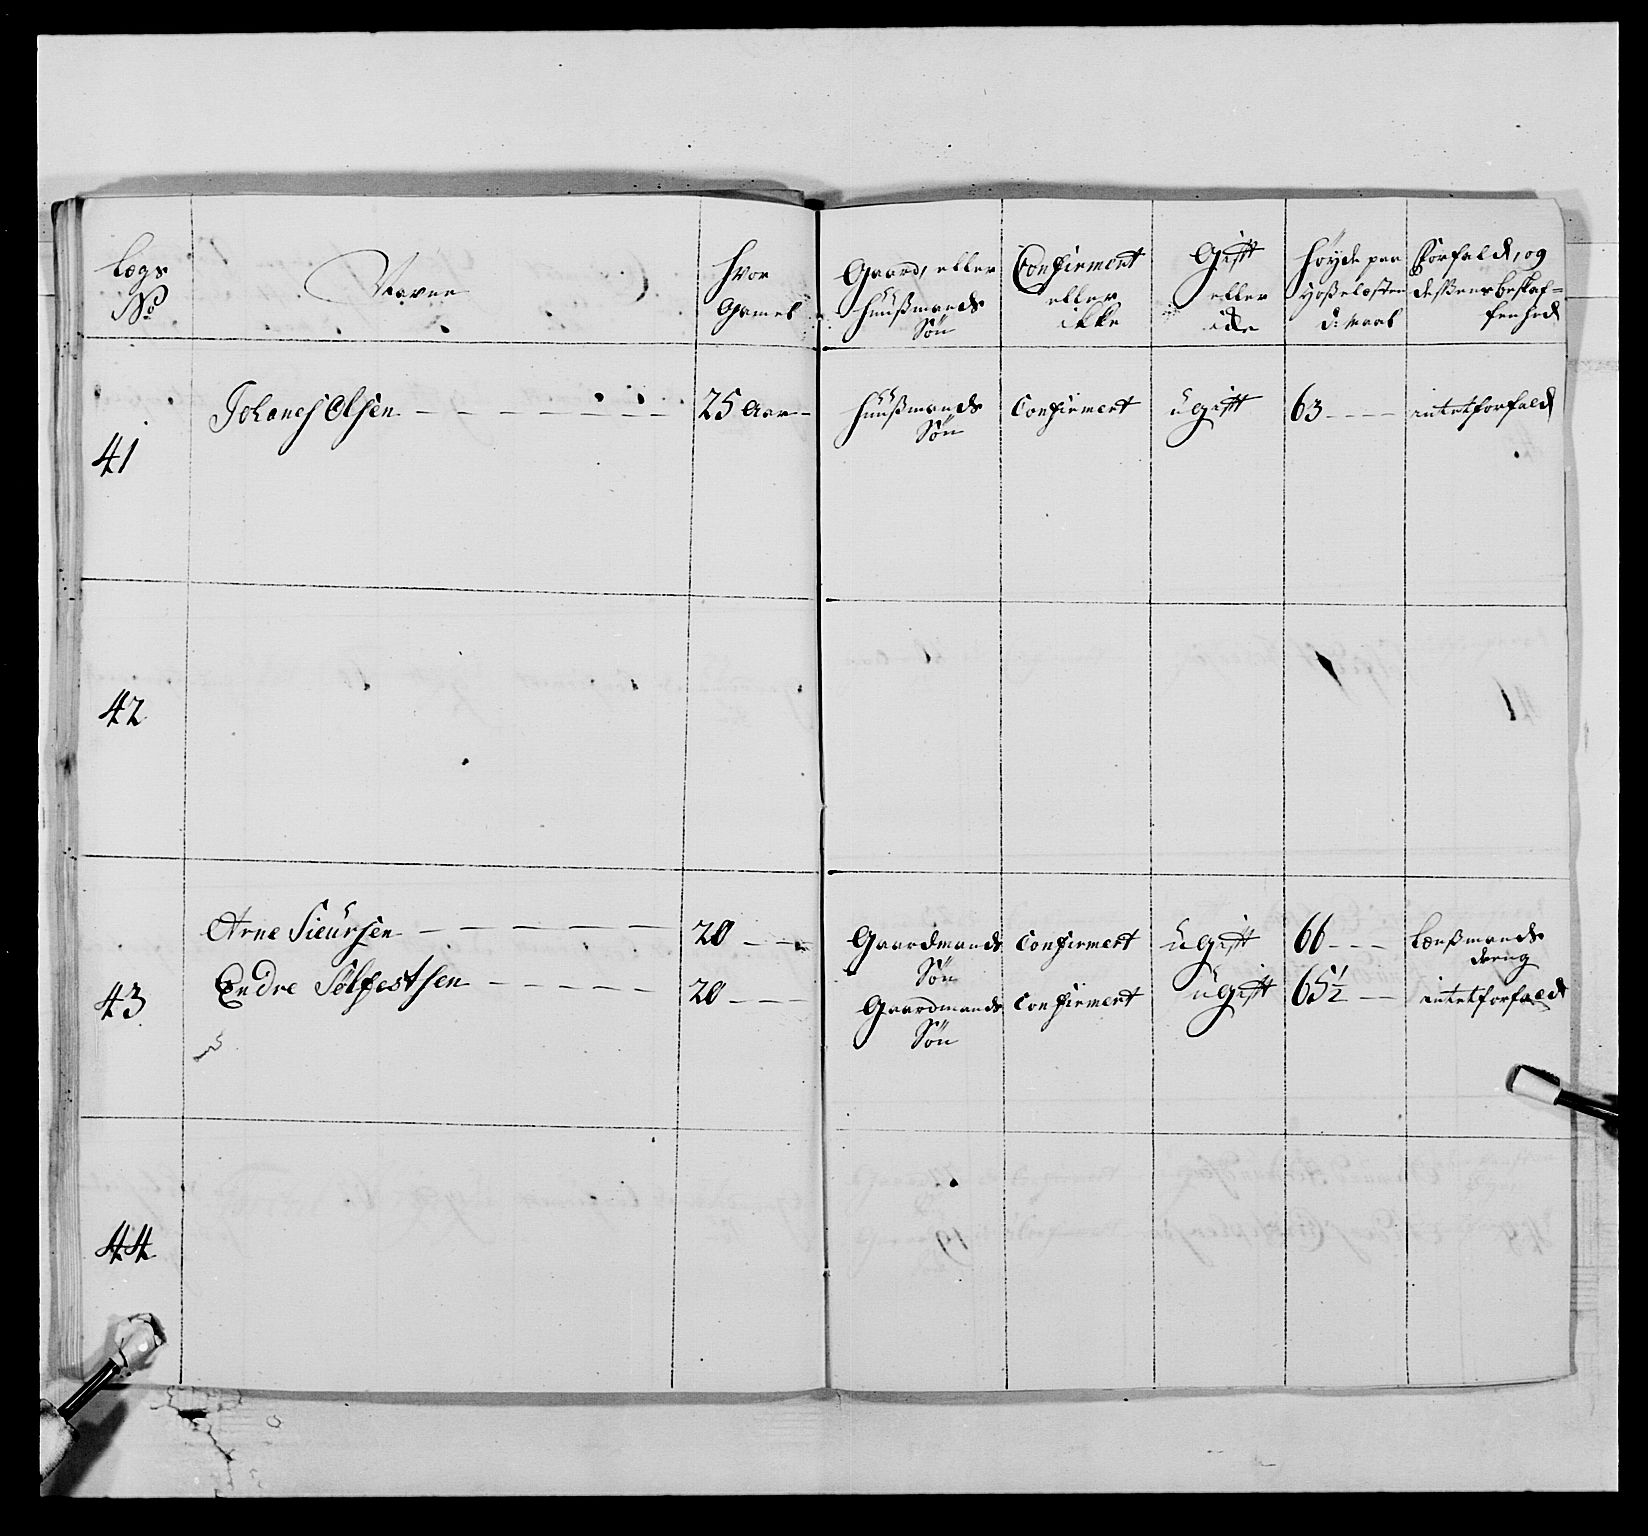 Lægs No | Navne | hvor Gamel | Gaard, eller Huusmands Søn | Confirmert eller ikke | Gift eller icke | Høyde paa Hoselæsten d: Maal | Forfald, og desßens beskaffenhed
41 | Johanes Olsen | 25 Aar | Huusmands Søn | Confirmert | ugift | 63 | intet forfald
42
43 | Arne Siursen | 20 | Gaardmands Søn | Confirmert | ugift | 66 | Lensmands dreng
Endre Sølfestsen | 20 | Gaardmands Søn | Confirmert | ugift | 65½ | intet forfald
44